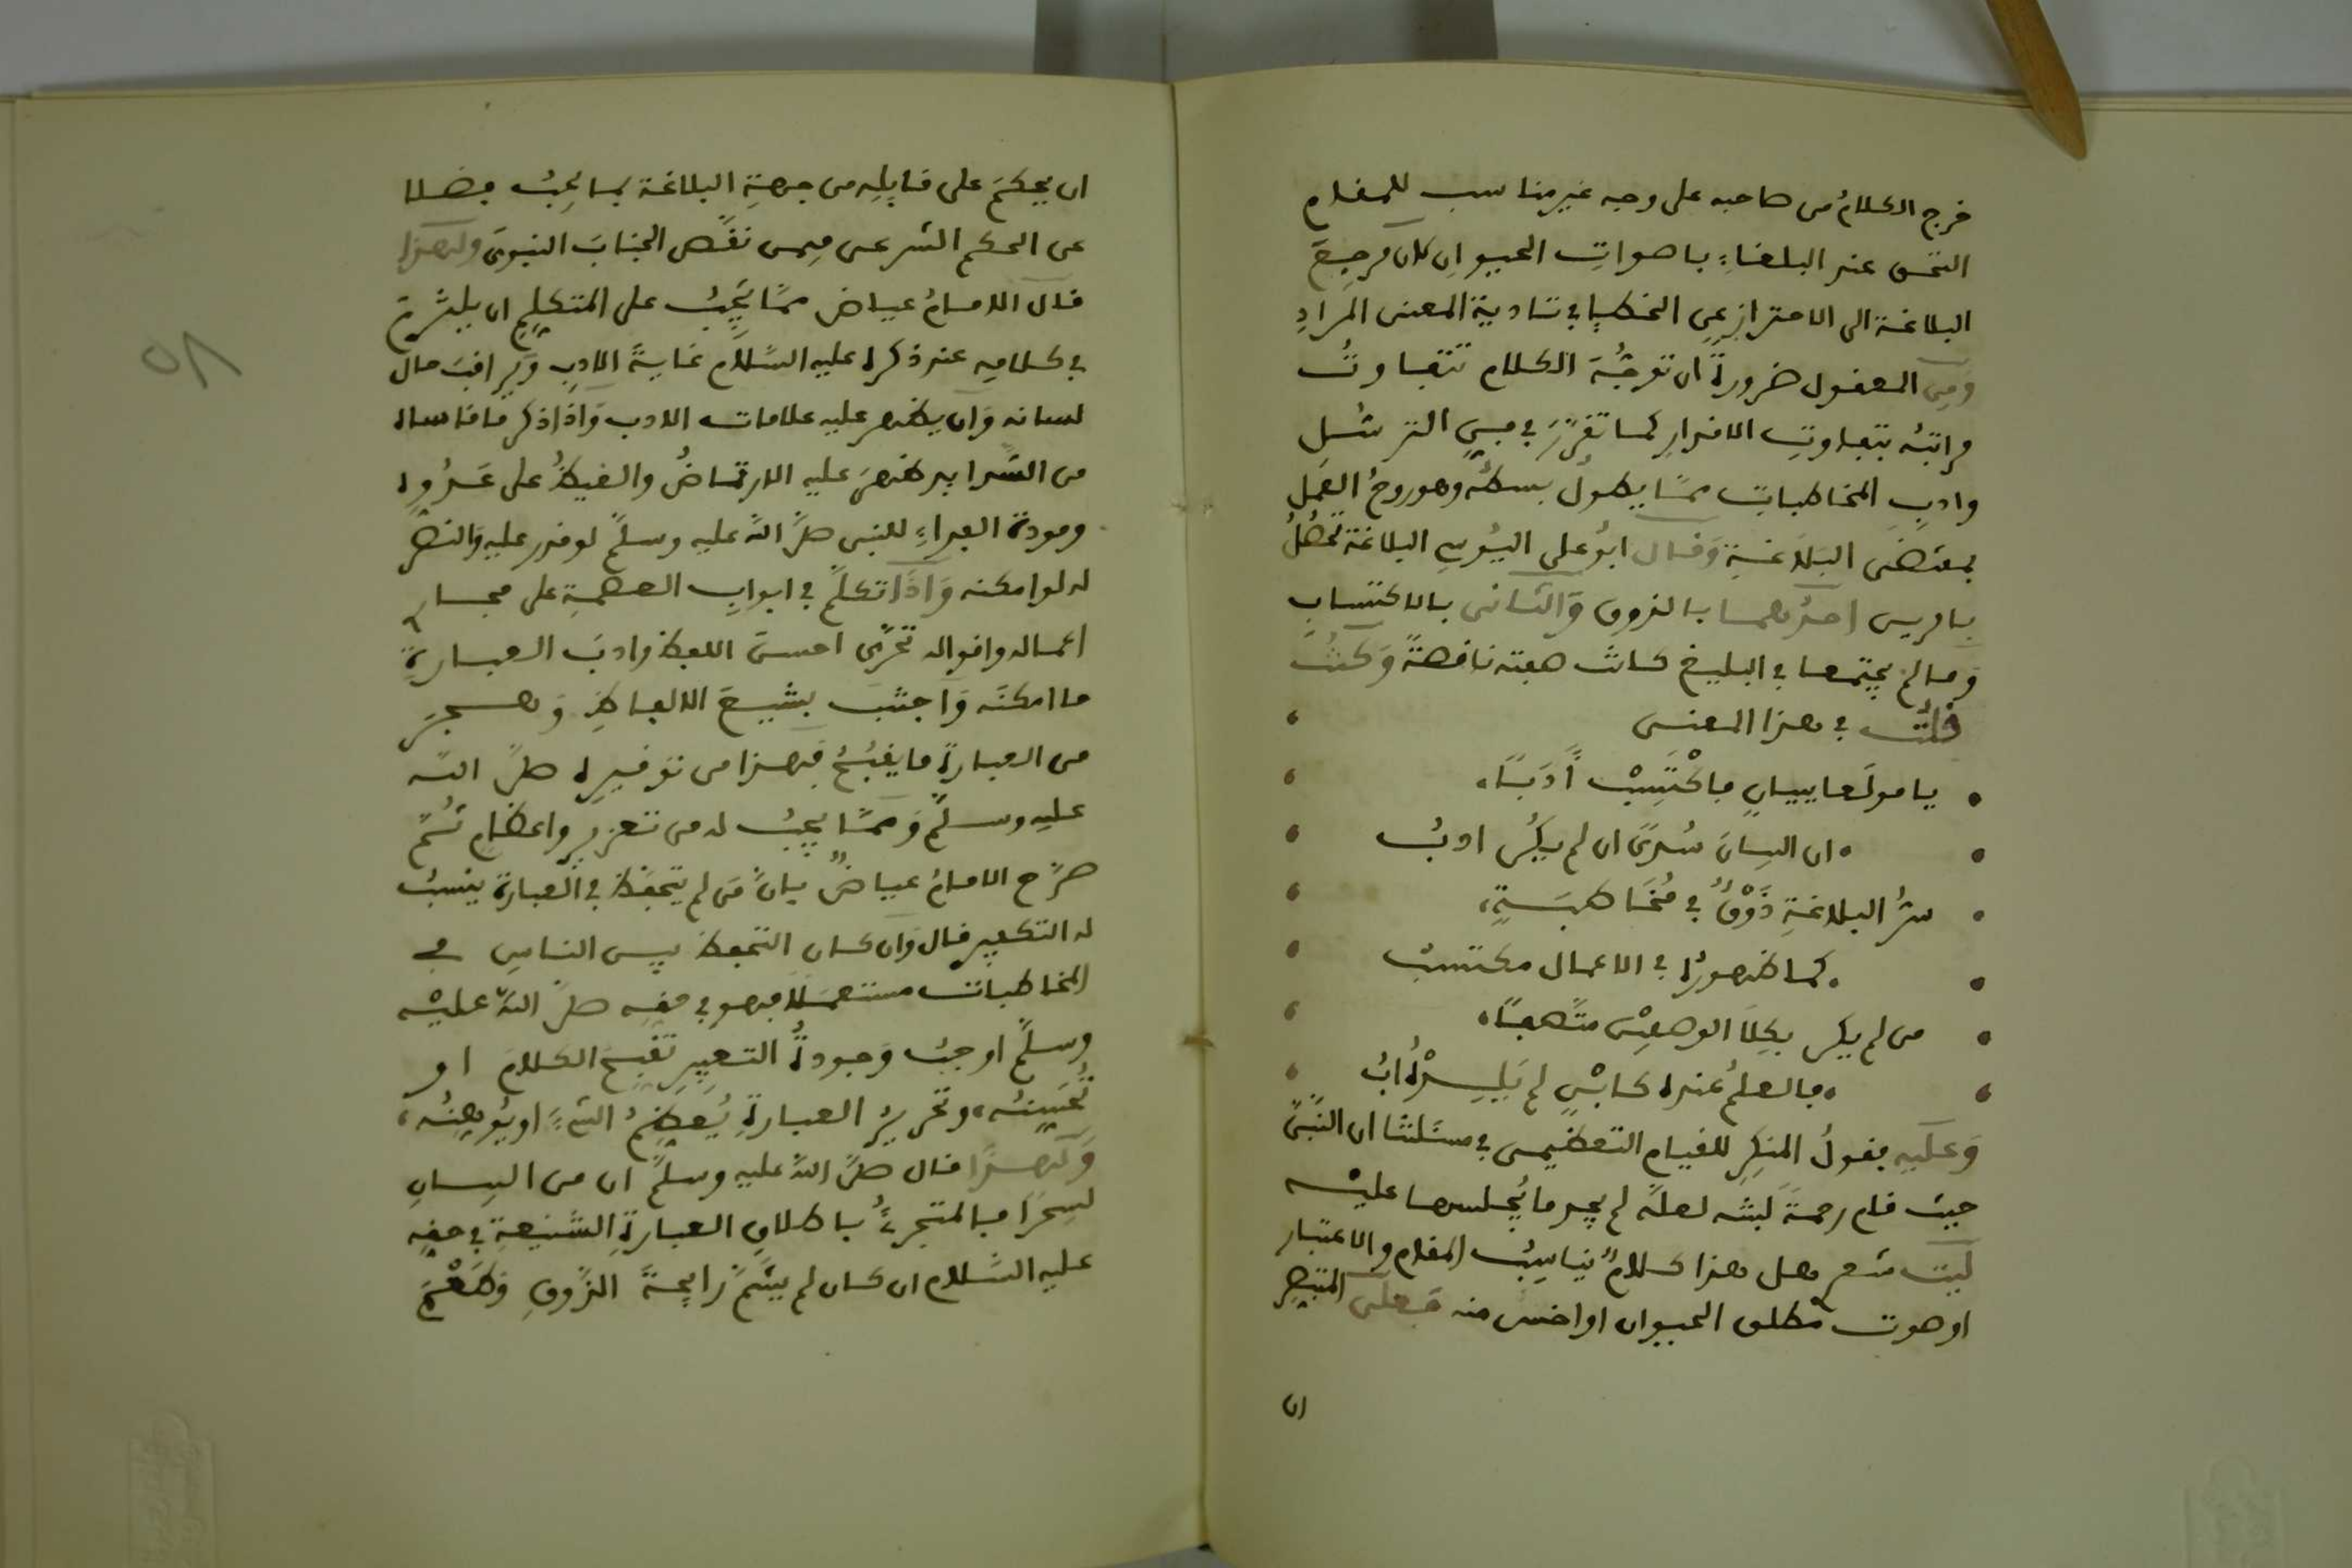 خرج الكلامُ من صاحبه على وجه غير مناسب للمقام
التحق عند البلغاءِ باصواتِ الحيوانِ لان مرجِعَ
البلاغة الى الاحترازِ عنِ الخطإِ في تادية المعنى المرادِ
وَمِن المعقول ضرورةً ان توجُّهَ الكلام تتفاوتُ
مراتبُه بتفاوتِ الاقدارِ كما تقرّرَ في فنِّ الترسُّلِ
وادبِ المخاطباتِ ممّا يطولُ بسطُه وهو روحُ العَمل
بمقتضَى البَلاغةِ وقال ابوُ على اليُوسِي البلاغة تحصُلُ
بامرين احدُهما بالذوق وَالثانى بالاكتسابِ
وَما لم يجتمعا في البليغ كانت صفته ناقصةً وَكنتُ
قلتُ في هذا المعنى
يا مولَعا ببيانٍ فاكْتَسِبْ أَدَبًا
ان البيانَ سُدًى ان لم يكُن ادبُ
سرُّ البلاغةِ ذَوْقٌ في مُخَاطبَةٍ
كما ظهورُه في الاعمال مكتسبُ
من لم يكن بكِلا الوصفيْنِ متّصفًا
فالعلمُ عنده كابْنٍ لم يَلِدْهُ ابُ
وَعليه فقولُ المنكِرِ للقيام التعظيمى في مسئلتنا ان النّبىّ
حيث قام رحمةً لبنته لعله لم يجد ما يُجلسها عليْه
ليت شعرِ هل هذا كلامٌ يناسِبُ المقام والاعتبار
او صوت مطلق الحيوان او اخسّ منه فعلى المتبصِّر
ان
ان يحكمَ على قايِلِه من جهةِ البلاغة بما يجِبُ فضلا
عن الحكم الشرعى فيمن نقّص الجنابَ النبوىّ ولهذا
قال الامامُ عياض ممّا يجِبُ على المتكلمِ ان يلتزمَ
في كلامِه عند ذكره عليه السّلام غايةَ الادبِ وَيراقبَ حال
لسانه وَان يظهر عليه علامات الادب وَاذا ذكر ما قاساه
من الشّدايد ظهرَ عليه الارتماضُ والغيظُ على عَدُوِّه
ومودةُ الفداءِ للنبى صلّى اللهُ عليه وسلّم لو قدر عليه وَالنصر
له لو امكنه وَاذَا تكلّم في ابوابِ العصمةِ على مجارى
اعماله واقواله تحرّى احسنَ اللفظ وادبَ العبارةِ
ما امكنَه وَاجتنبَ بشيعَ الالفاظِ وَهجرَ
من العبارةِ ما يقبُحُ فهذا من توقيرِه صلّى الله
عليه وسلّم وَممّا يجِبُ له من تعزيرٍ واعظامٍ ثُمّ
صرّح الامامُ عياضٌ بانّ مَن لم يتحفّظ في العبارة ينسبُ
له التكفير قال وَان كان التحفظ بين الناسِ في
المخاطبات مستعملًا فهو في حقه صلّى اللهُ عليْه
وسلّم اوجبُ وَجودةُ التعبِيرِ تقبحُ الكلامَ او
تُحَسِّنُه وتحريرُ العبارةِ يُعظِمُ الشيءَ او يُوهِنُه
وَلهذا قال صلّى اللهُ عليه وسلّم ان من البيانِ
لسِحرًا فالمتجرئُ باطلاقِ العبارةِ الشنيعةِ في حقِه
عليه السّلام ان كان لم يشمّ رايحةَ الذّوقِ وَطعْمَ